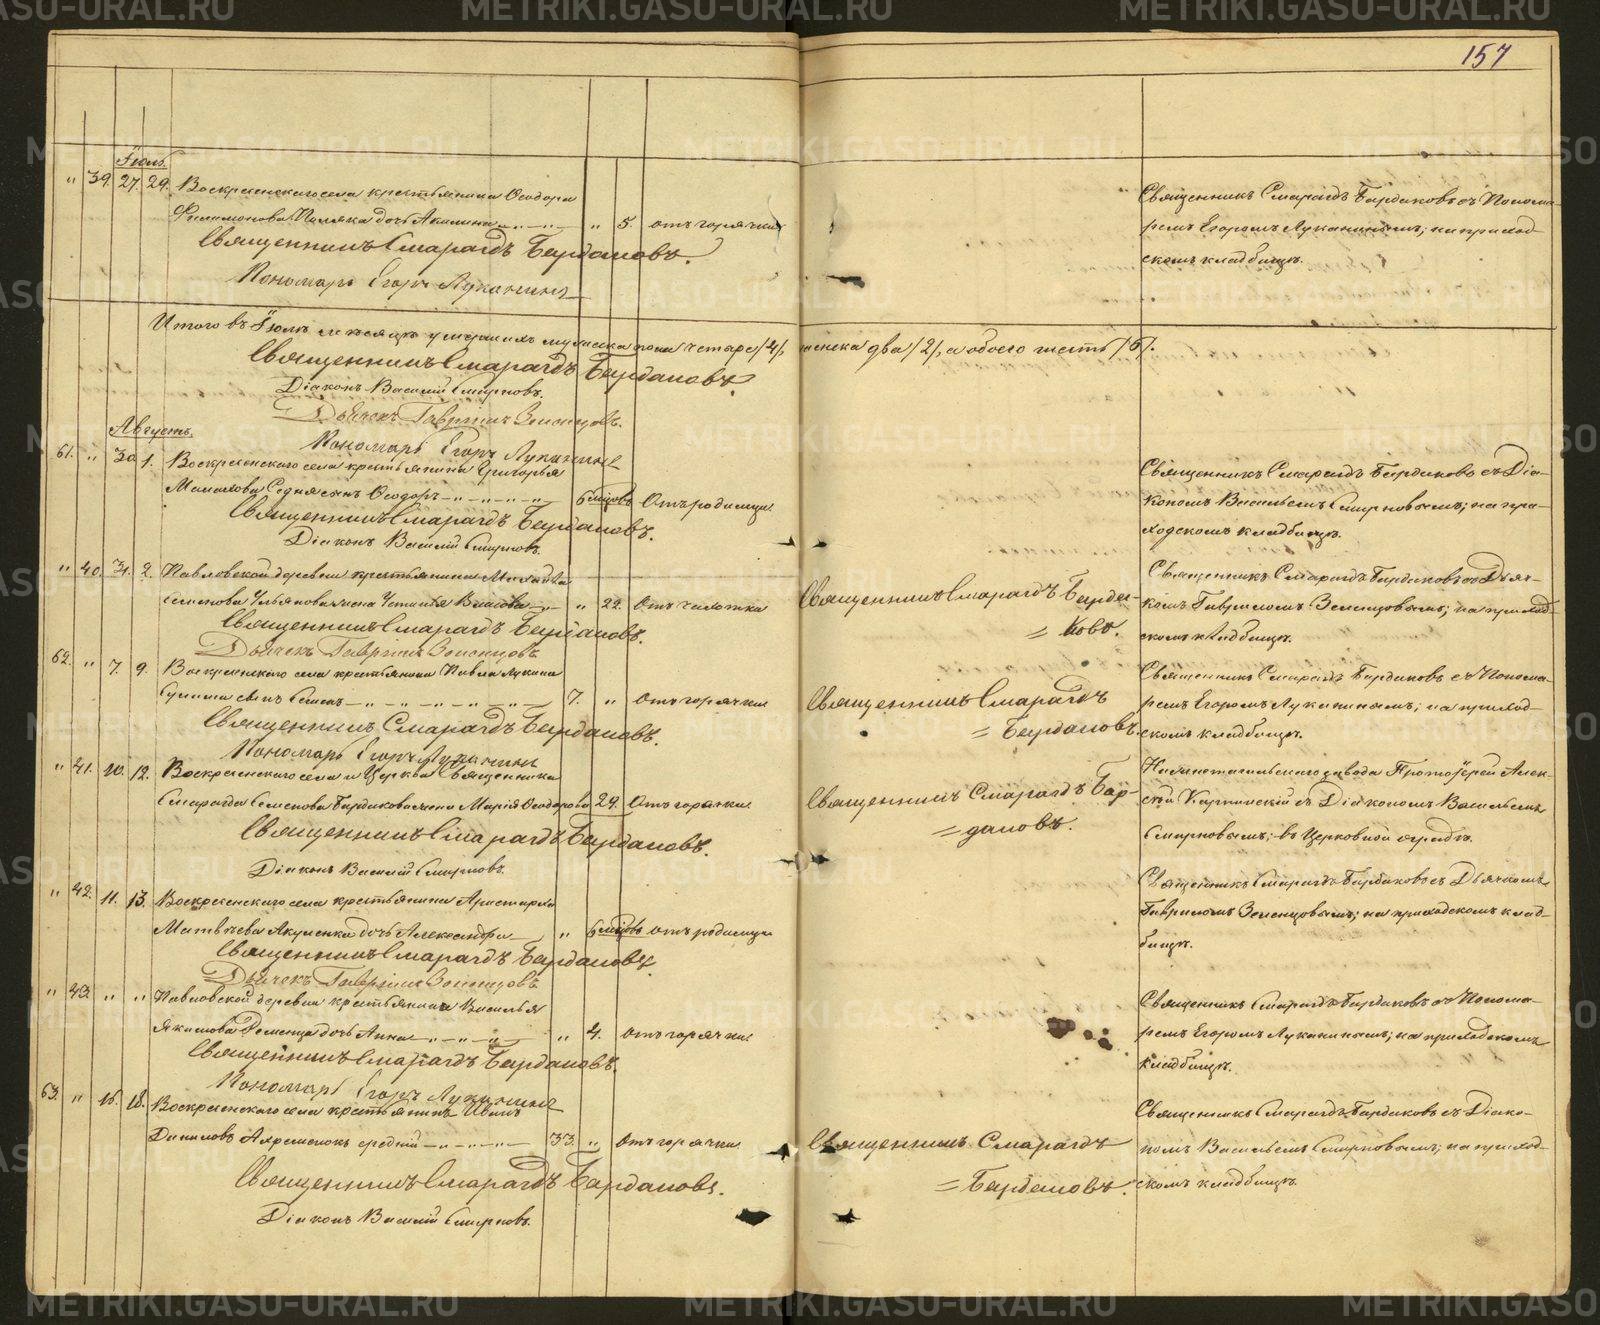 METRIKI.GASU-URAL.RU
157
Іюль.
" 39. 27. 29. Воскресенскаго села крестьянина Ѳеодора
Филимонова дочь Акилина " 5. отъ горячки
Священникъ Смарагдъ Бардаковъ.
Пономарь Егоръ Луканинъ
Священникъ Смарагдъ Бардаковъ съ Понома-
ремъ Егоромъ Луканинымъ; на приход-
скомъ кладбищѣ.
Итого въ Іюлѣ мѣсяцѣ умершихъ мужеска пола четыре /4/, женска два /2/, а обоего шесть /6/.
Священникъ Смарагдъ Бардаковъ.
Діаконъ Василій Смирновъ.
Дьячекъ Гавріилъ Земенцовъ.
Пономарь Егоръ Луканинъ
Августъ.
61. " 30. 1. Воскресенскаго села крестьянина Григорья
сынъ Ѳеодоръ 6 мѣсцовъ Отъ родимца
Священникъ Смарагдъ Бардаковъ.
Діаконъ Василій Смирновъ.
Священникъ Смарагдъ Бардаковъ съ Діа-
кономъ Васильемъ Смирновымъ; на при-
ходскомъ кладбищѣ.
" 40. 31. 2. Павловской деревни крестьянина Михаила
Семенова Ульянова жена Устинья Власова " 22. Отъ чахотки
Священникъ Смарагдъ Бардаковъ.
Дьячекъ Гавріилъ Земенцовъ
Священникъ Смарагдъ Барда-
= ковъ.
Священникъ Смарагдъ Бардаковъ со Дьяч-
комъ Гавриломъ Земенцовымъ; на приход-
скомъ кладбищѣ.
62. " 7. 9. Воскресенскаго села крестьянина Павла Лукина
сынъ Семенъ 7. " Отъ горячки
Священникъ Смарагдъ Бардаковъ.
Пономарь Егоръ Луканинъ
Священникъ Смарагдъ
= Бардаковъ.
Священникъ Смарагдъ Бардаковъ съ Понома-
ремъ Егоромъ Луканинымъ; на приход-
скомъ кладбищѣ.
" 41. 10. 12. Воскресенскаго села и Церкви Священника
Смарагда Семенова Бардакова жена Марія Ѳеодорова 29. Отъ горячки
Священникъ Смарагдъ Бардаковъ.
Діаконъ Василій Смирновъ.
Священникъ Смарагдъ Бар-
= даковъ.
завода Протоіерей Алек-
сѣй Карпинскій съ Діакономъ Васильемъ
Смирновымъ; въ Церковной оградѣ.
" 42. 11. 13. Воскресенскаго села крестьянина Аристарха
Матвѣева Акуленка дочь Александра " 6 мѣсцовъ отъ родимца
Священникъ Смарагдъ Бардаковъ.
Дьячекъ Гавріилъ Земенцовъ
Священникъ Смарагдъ Бардаковъ съ Дьячкомъ
Гавриломъ Земенцовымъ; на приходскомъ клад-
бищѣ.
" 43. " " Павловской деревни крестьянина Василья
Якимова дочь Анна " 4. отъ горячки
Священникъ Смарагдъ Бардаковъ.
Пономарь Егоръ Луканинъ
Священникъ Смарагдъ Бардаковъ съ Понома-
ремъ Егоромъ Луканинымъ; на приходскомъ
кладбищѣ.
63. " 16. 18. Воскресенскаго села крестьянинъ Иванъ
Даниловъ средній 33. " отъ горячки
Священникъ Смарагдъ Бардаковъ.
Діаконъ Василій Смирновъ.
Священникъ Смарагдъ
= Бардаковъ.
Священникъ Смарагдъ Бардаковъ съ Діако-
номъ Васильемъ Смирновымъ; на приход-
скомъ кладбищѣ.